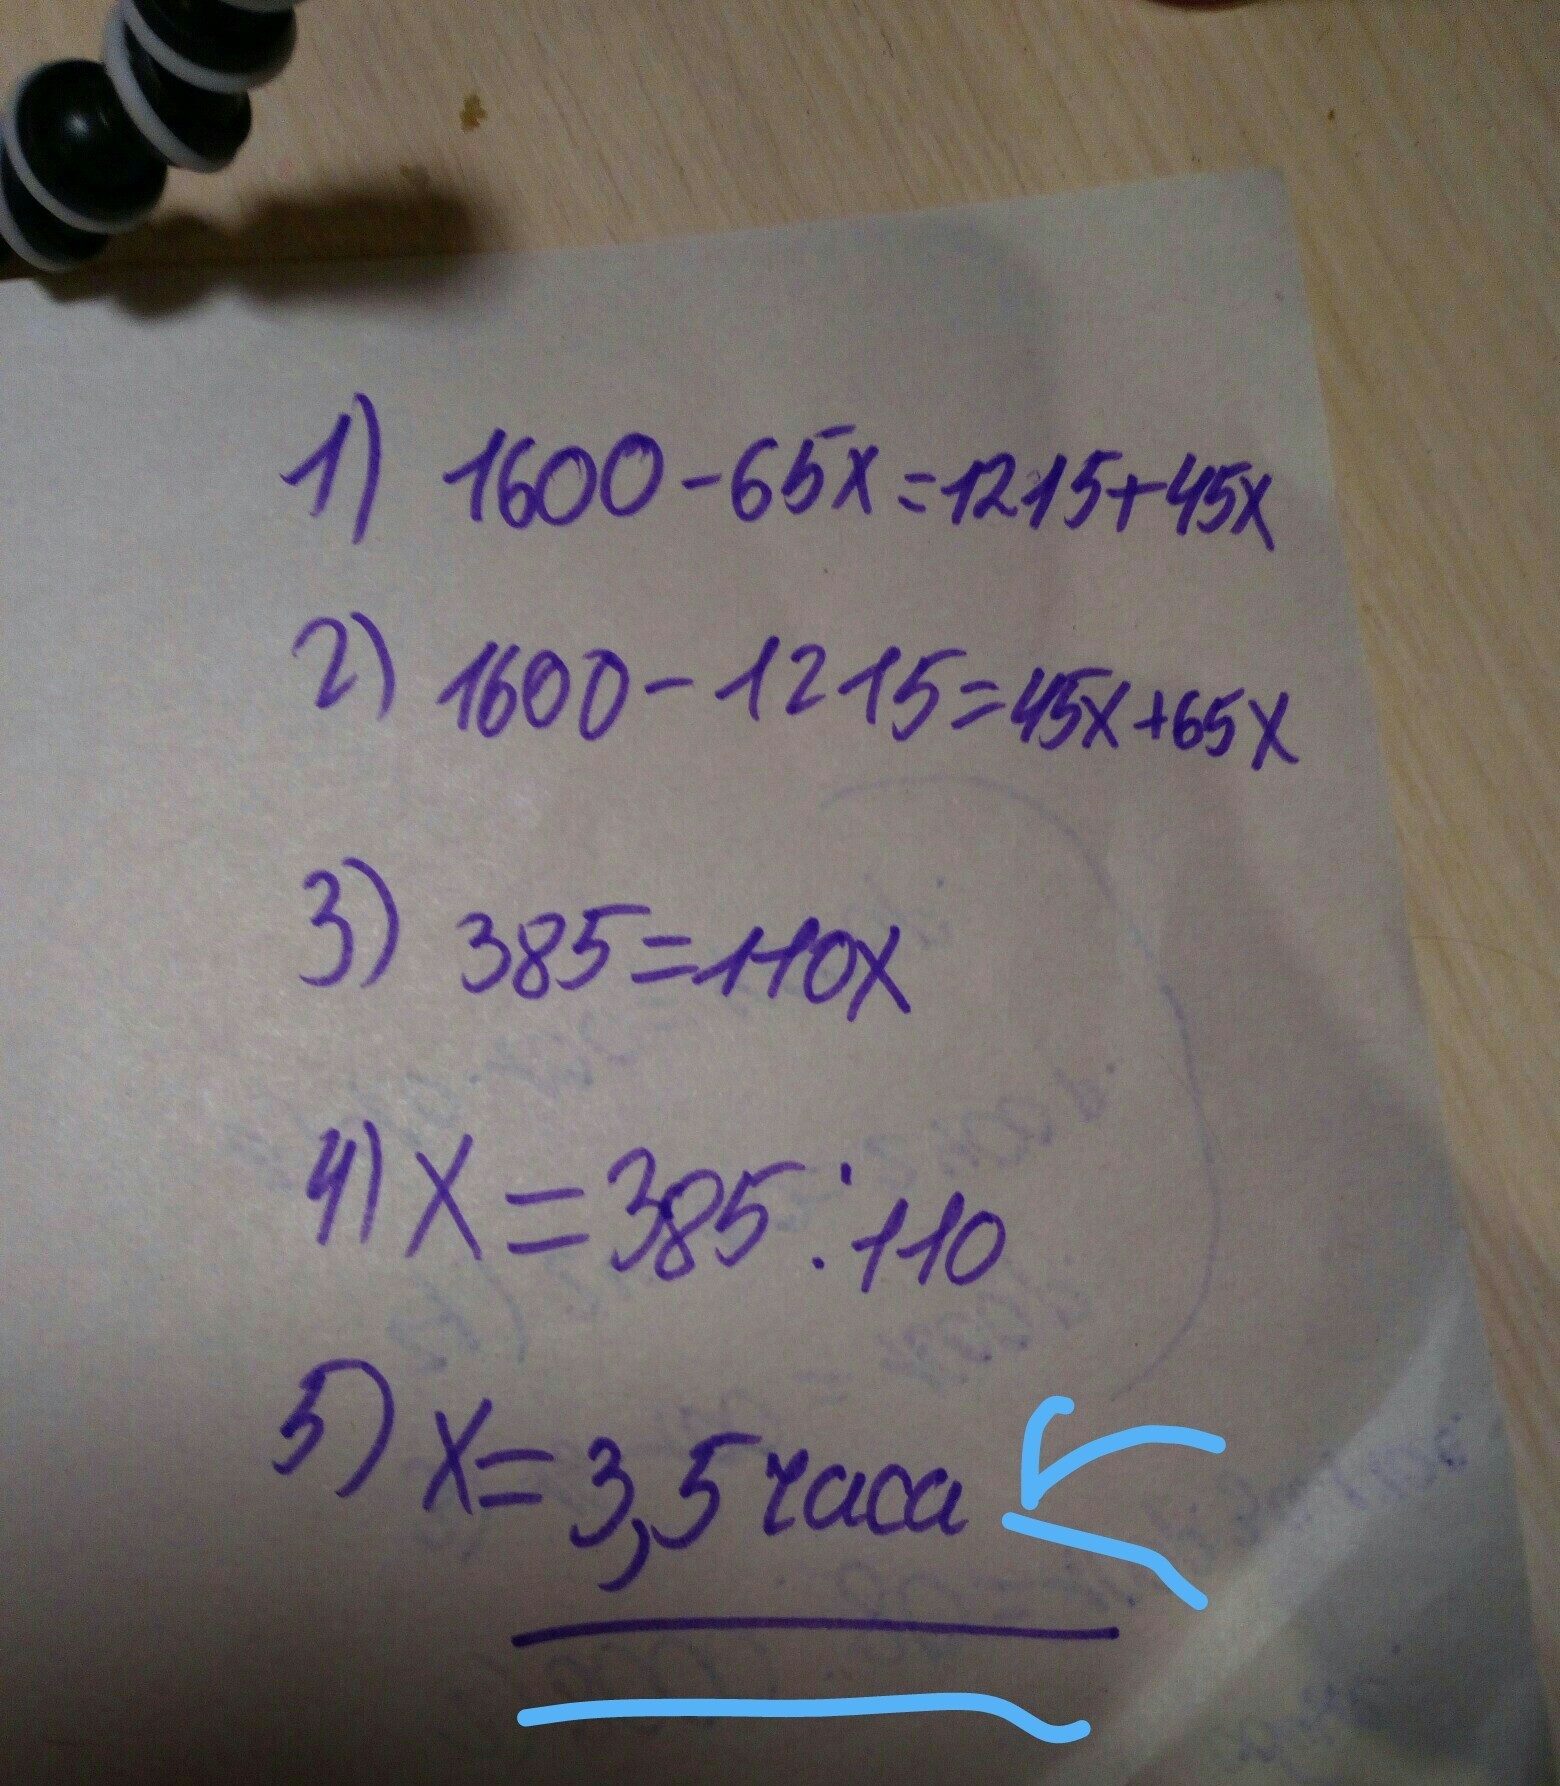 1) 1600-65x=1215+45x
2) 1600-1215=45x+65x
3) 385=110x
4) x=385:110
5) x=3,5 часа